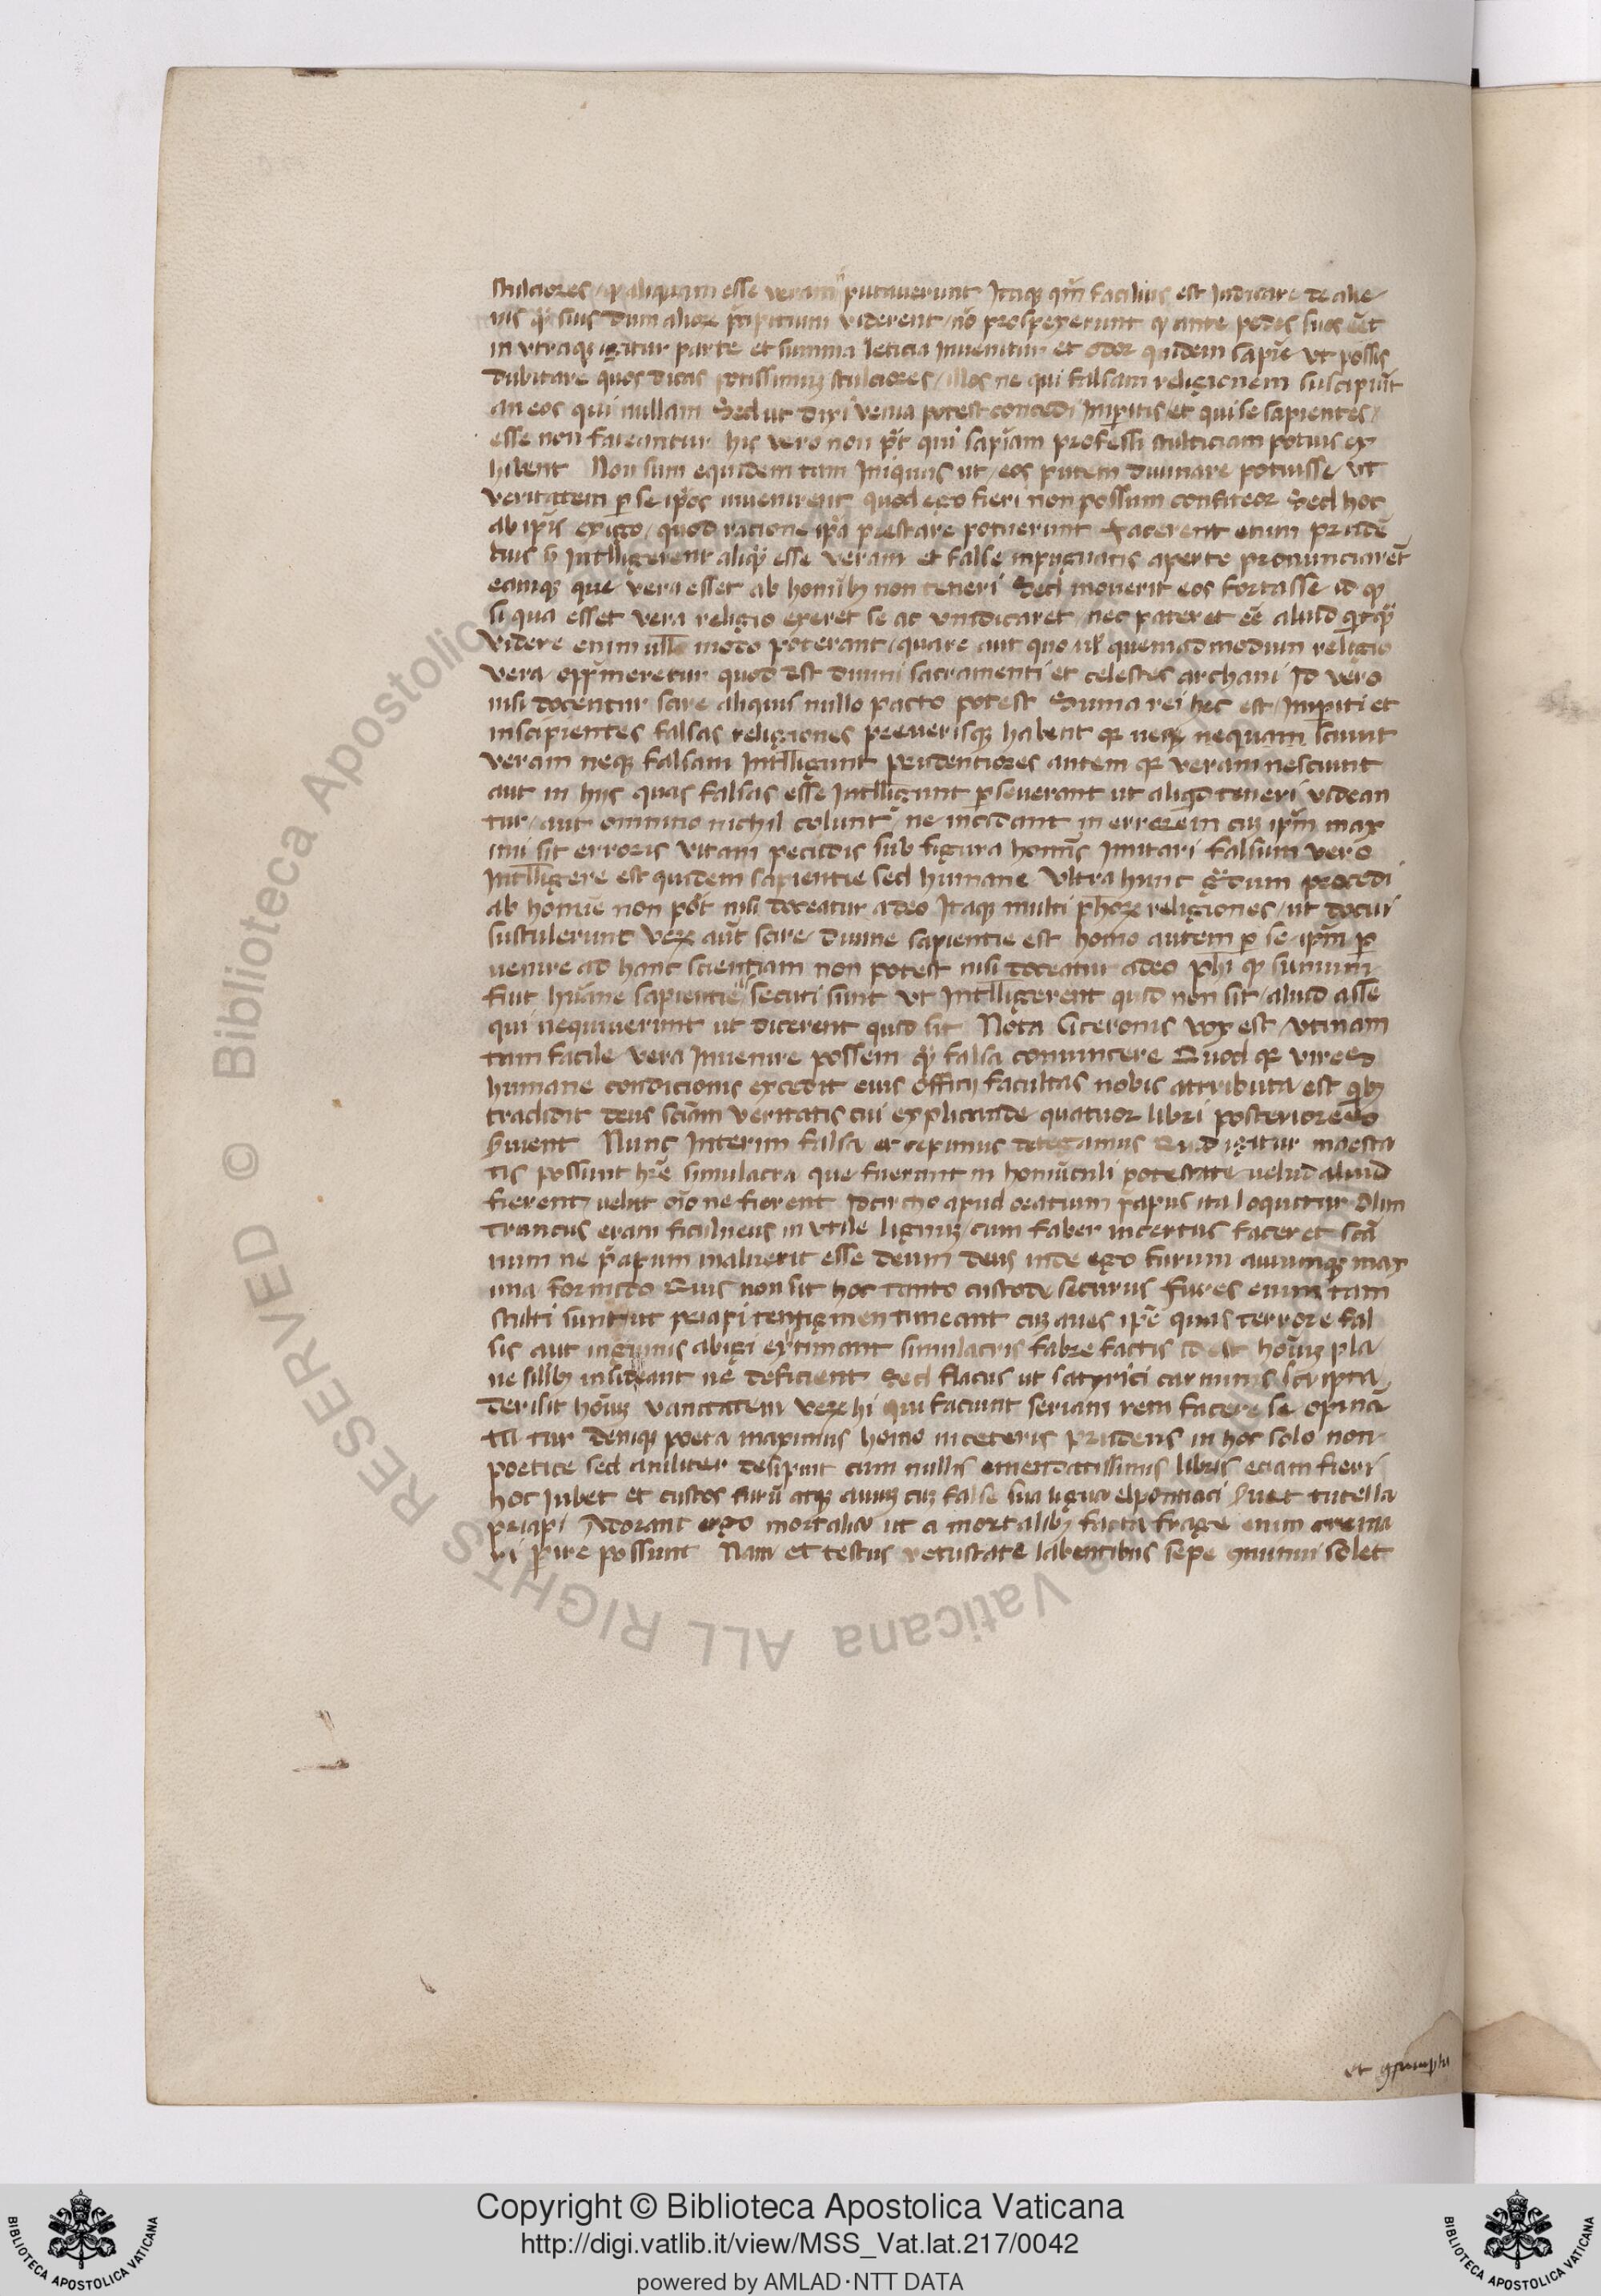 stulciores / qͥ aliquam esse veram putaverunt Itaqꝫ qm̄ facilius est Iudicare de alie
nis qͣꝫ suis dum alioꝝ p̄cipitium viderent / nō prospexerunt qͩ ante pedes suos ēet
in utraqꝫ igitur parte et summa leticia Invenitur et odor quidem sapīe ut possis
dubitare quos dicas potissimuꝫ stulciores / illos ne qui falsam religionem suscipiūt
an eos qui nullam Sed ut dixi venia potest concedi Imꝑitis / et qui se sapientes /
esse non fateantur his vero non pōt qui sapiam professi stulticiam potius ex
hibent Non sum equidem tam Iniquus ut / eos putem divinare potuisse ut
veritatem ꝑ se ipōs invenirent quod ego fieri non possum confiteor Sed hoc
ab ipīs exigo / quod racione ipā prestare potuerunt facerent enim prudē
tius si Intelligerent aliqͣꝫ esse veram et false inpugnatis aperte pronunciarēt
eamqꝫ que vera esset ab homībꝫ non teneri Sed moverit eos fortasse id qͩ
si qua esset vera religio exeret se ac vindicaret / nec pateret ēe aliud qͥcqͣꝫ
videre enim ullo modo poterant / quare aut quo ul̄ quemadmodum religio
vera opp̄meretur quod Est divini sacramenti et celestes archani Id vero
nisi docentur scire aliquis nullo pacto potest Suma rei hec est / Imꝑiti et
inscipientes falsas religiones pro verisqꝫ habent qꝛ neqꝫ nequam sciunt
veram neqꝫ falsam Intelligunt prudentiores autem qꝛ veram nesciunt
aut in hiis quas falsas esse Intelligunt ꝑseverant ut aliqͥd teneri videan
tur / aut omnino nichil colunt / ne incidant in errorem cuꝫ ipm̄ max
imi sit erroris vitam pecudis sub figura homīs Imitari falsum vero
Intelligere est quidem sapientie sed humane Ultra hunc gͣdum procedi
ab homīe non pōt nisi doceatur a deo Itaqꝫ multi ph̄oꝝ religiones / ut docui
sustulerunt veꝝ aūt scire divine sapientie est homo autem ꝑ se ipm̄ ꝑ
venire ad hanc scientiam non potest nisi doceatur a deo phi qͩ sumum
fuit hūane sapientie secuti sunt ut Intelligerent quid non sit / aliud asse
qui nequiverunt ut dicerent quid sit Nota Ciceronis vox est / utinam
tam facile vera Invenire possem qͣꝫ falsa convincere Quod qꝛ vires
humane condicionis excedit eius officij facultas nobis attributa est qͥbꝫ
tradidit deus sciam veritatis cui explicande quatuor libri posteriores
Nunc Interim falsa et cepimus detegamus Quid igitur maesta
tis possunt hr̄e simulacra que fuerant in homūculi potestate velud aliud
fierent / velut oīo ne fierent Idcircho apud oratium priapus ita loquitur Olim
truncus eram ficulneus in utile lignuꝫ / cum faber incertus faceret scā
num ne priapum maluerit esse deum deus inde ego furum aviumqꝫ max
ima formido Quis non sit hoc tanto custode securus Fures enim tam
stulti sunt ut priapi tentiginem timeant cuꝫ aves ipē quas terrore fal
sis aut inguinis abigi extimant simulacris fabre factis id est hoīuꝫ pla
ne silibꝫ insideant ne deficient Sed flacus ut satyrici carminis scriptor
derisit hoīuꝫ vanitatem veꝝ hi qui faciunt seriam rem facere se opinā
tur deniqꝫ poeta maximus homo in ceteris prudens in hoc solo non
poetice sed aniliter desipuit cum nullis emendatissimis libris eciam fieri
hoc Iubet et custos furū atqꝫ aviuꝫ cuꝫ false sua ligua elpontiaci tutella
priapi Adorant ergo mortalia ut a mortalibꝫ facta frage enim crema
ri ꝑire possunt Nam et testus vetustate labentibus sepe 9minui solet
et 9sumpta